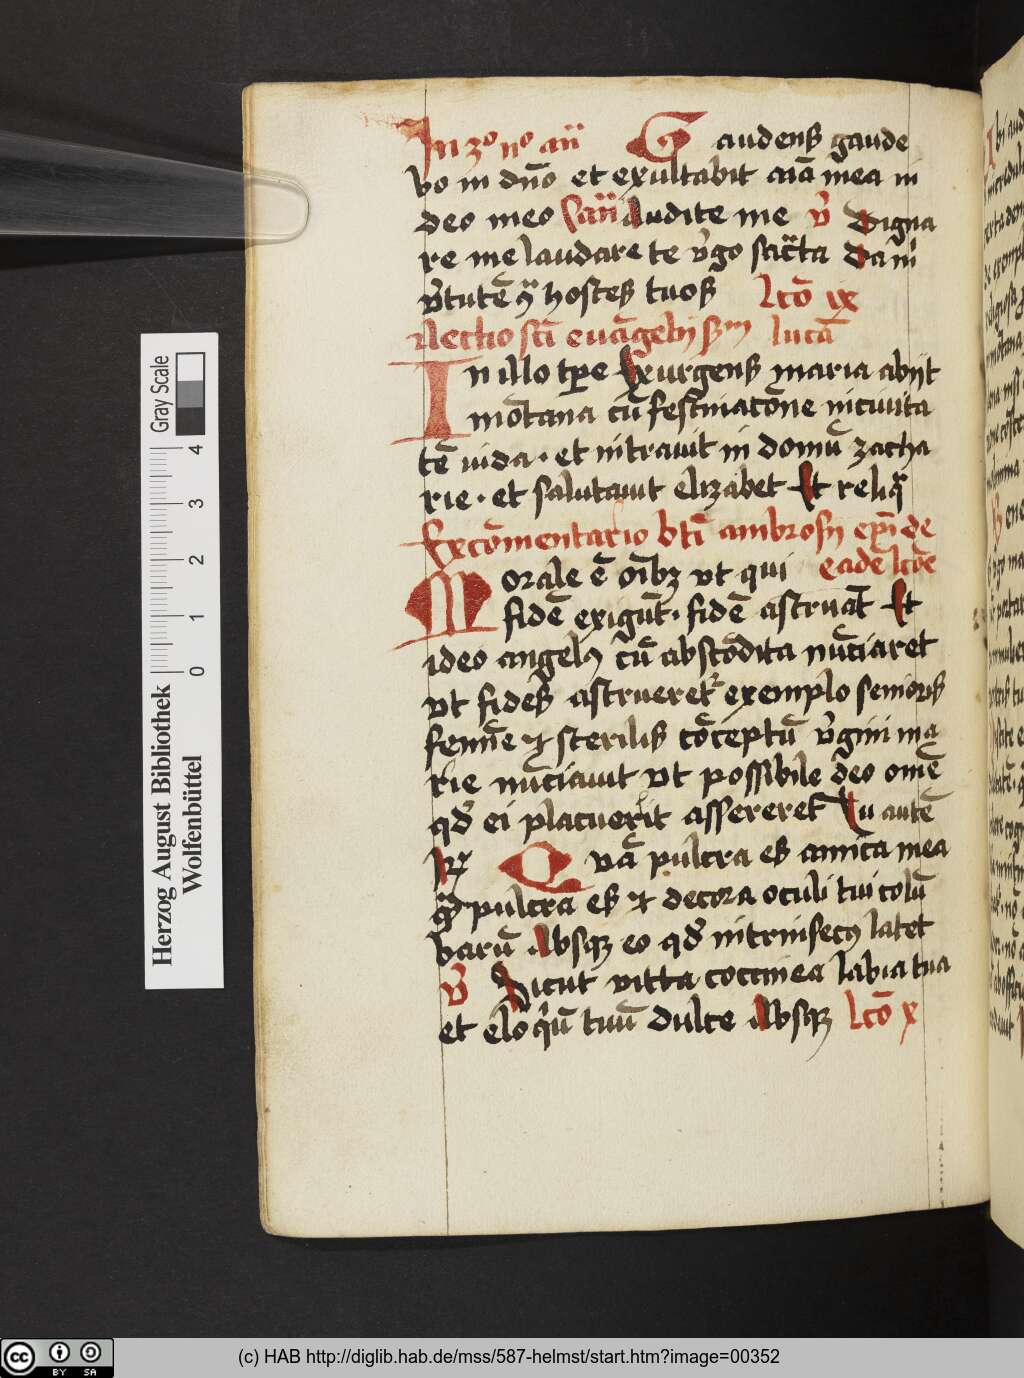 In 3o no an̄ Gaudens gaude
bo in dn̄o et exultabit aīa mea in
deo meo Can̄ Audite me v̄ Digna
re me laudare te v̄go sac̄ta Da m̄
v̄tutē ꝯ hostes tuos Lcō ix
Lectio sc̄i euāgelij sm Lucā
In illo tp̄e Exurgens maria abijt
mōtana cū festinacōne in ciuita
tē iuda · et intrauit in domū zacha
rie · et salutauit elizabet Et reliq̄
Ex cōmentario bt̄i ambrosij ep̄i de
Morale ē oībꝫ vt qui eadē lcōe
fidē exigūt · fidē astruāt Et
ideo angelꝯ cū abscōdita nūciaret
vt fides astrueretᷣ exemplo senioris
femīe ⁊ sterilis cōceptū v̄gini ma
rie nūciauit vt possibile deo om̄e
qd̄ ei placuerit assereret Tu autē
℟ Quā pulcra es amica mea
q̄ꝫ pulcra es ⁊ decora oculi tui colū
barū Absqꝫ eo qd̄ intrinsecꝯ latet
v̄ Sicut vitta coccinea labia tua
et eloq̄ū tuū dulce Absqꝫ Lcō x
Gray Scale
4
3
2
1
0
Herzog August Bibliothek
Wolfenbüttel
cc
BY SA
(c) HAB http://diglib.hab.de/mss/587-helmst/start.htm?image=00352